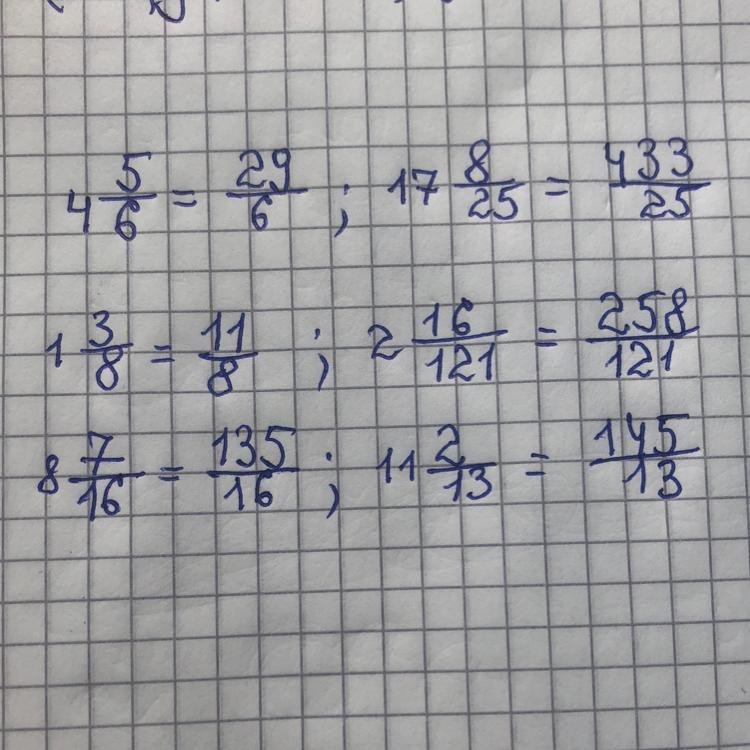 4 5/6 = 29/6 ; 17 8/25 = 433/25
1 3/8 = 11/8 ; 2 16/121 = 258/121
8 7/16 = 135/16 ; 11 2/13 = 145/13